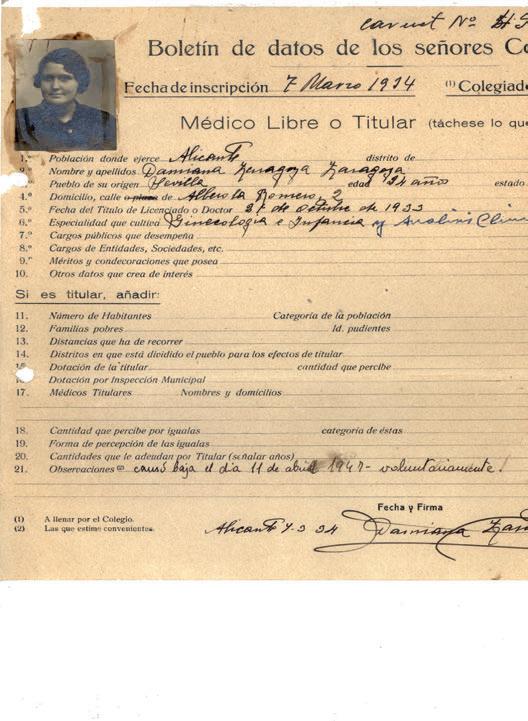 carnet Nº
Boletín de datos de los señores Co
Fecha de inscripción 7 Marzo 1934 (1) Colegiad
Médico Libre o Titular (táchese lo que
1.º Población donde ejerce Alicante distrito de
2.º Nombre y apellidos Damiana Zaragoza Zaragoza
Pueblo de su origen Sevilla edad 24 año estado
4.º Domicilio, calle o plaza de Alberola Romero, 2
5.º Fecha del Título de Licenciado o Doctor 27 de octubre de 1933
6.º Especialidad que cultiva Ginecología e Infancia y Analisis Clini
7.º Cargos públicos que desempeña
8.º Cargos de Entidades, Sociedades, etc.
9.º Méritos y condecoraciones que posea
10. Otros datos que crea de interés
Si es titular, añadir:
11. Número de Habitantes Categoría de la población
12. Familias pobres Id. pudientes
13. Distancias que ha de recorrer
14. Distritos en que está dividido el pueblo para los efectos de titular
15 Dotación de la titular cantidad que percibe
Dotación por Inspección Municipal
17. Médicos Titulares Nombres y domicilios
18. Cantidad que percibe por igualas categoría de éstas
19. Forma de percepción de las igualas
20. Cantidades que le adeudan por Titular (señalar años)
21. Observaciones (2) causó baja el día 11 de abril 1947 - voluntariamente.
Fecha y Firma
(1) A llenar por el Colegio.
(2) Las que estime convenientes.
Alicante 7-3-34 Damiana Zara